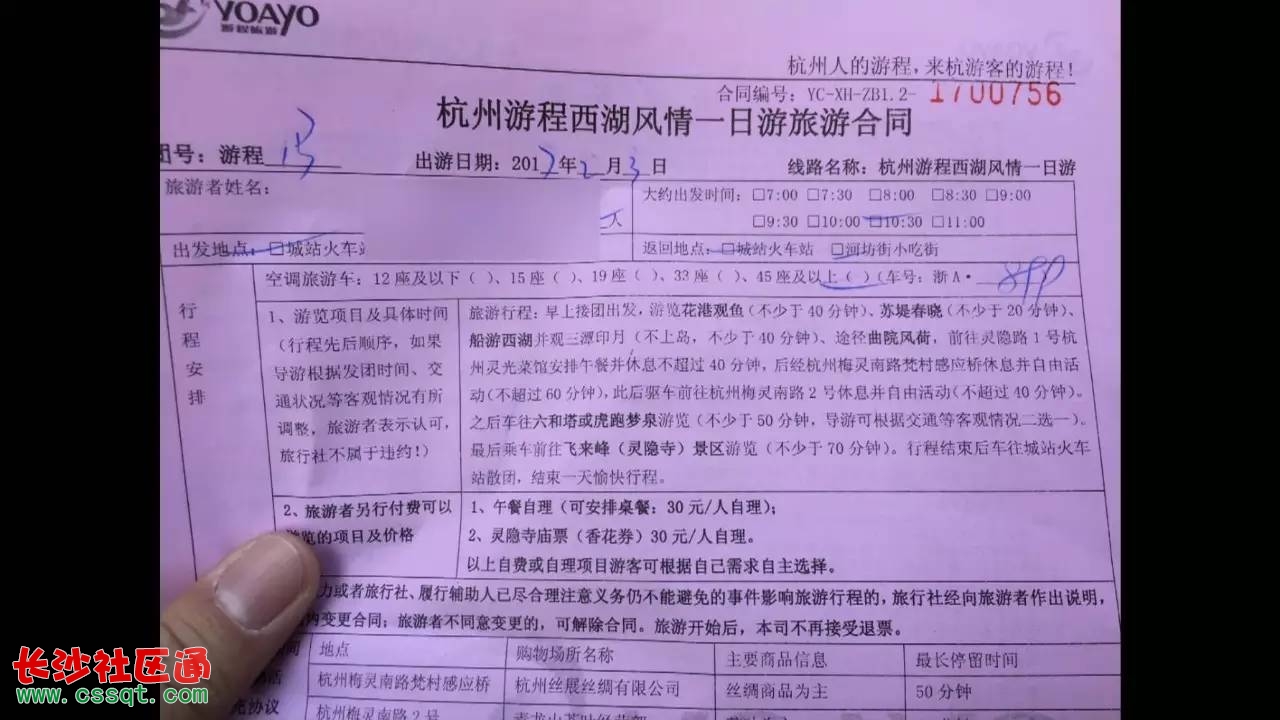 YOAYO
游程旅游
杭州人的游程,来杭游客的游程!
合同编号: YC-XH-ZB1.2- 1700756
杭州游程西湖风情一日游旅游合同
团号: 游程
出游日期: 2017年2月3日
线路名称: 杭州游程西湖风情一日游
旅游者姓名:
大约出发时间: □7:00 □7:30 □8:00 □8:30 □9:00
□9:30 □10:00 □10:30 □11:00
出发地点: □城站火车站
返回地点: □城站火车站 □河坊街小吃街
行程安排
空调旅游车: 12座及以下( )、15座( )、19座( )、33座( )、45座及以上( )(车号: 浙A·
1、游览项目及具体时间
(行程先后顺序, 如果
导游根据发团时间、交
通状况等客观情况有所
调整, 旅游者表示认可,
旅行社不属于违约!)
旅游行程: 早上接团出发, 游览花港观鱼(不少于40分钟)、苏堤春晓(不少于20分钟)、
船游西湖并观三潭印月(不上岛, 不少于40分钟)、途径曲院风荷, 前往灵隐路1号杭
州灵光菜馆安排午餐并休息不超过40分钟, 后经杭州梅灵南路梵村感应桥休息并自由活
动(不超过60分钟), 此后驱车前往杭州梅灵南路2号休息并自由活动(不超过40分钟)。
之后车往六和塔或虎跑梦泉游览(不少于50分钟, 导游可根据交通等客观情况二选一)。
最后乘车前往飞来峰(灵隐寺)景区游览(不少于70分钟)。行程结束后车往城站火车
站散团, 结束一天愉快行程。
2、旅游者另行付费可以
游览的项目及价格
1、午餐自理(可安排桌餐: 30元/人自理);
2、灵隐寺庙票(香花券)30元/人自理。
以上自费或自理项目游客可根据自己需求自主选择。
力或者旅行社、履行辅助人已尽合理注意义务仍不能避免的事件影响旅游行程的, 旅行社经向旅游者作出说明,
内变更合同; 旅游者不同意变更的, 可解除合同。旅游开始后, 本司不再接受退票。
地点
购物场所名称
主要商品信息
最长停留时间
杭州梅灵南路梵村感应桥
杭州丝展丝绸有限公司
丝绸商品为主
50分钟
充协议
杭州梅灵南路2号
长沙社区通
www.cssqt.com